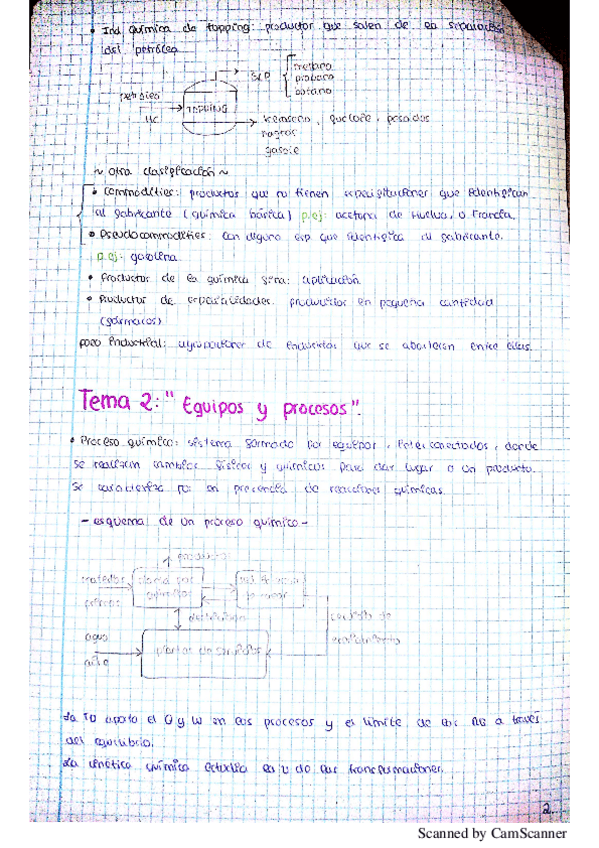 • Ind química de topping: productos que salen de la separación
del petróleo
metano
GLP propano
butano
petróleo
TOPPING
keroseno, queroseno, pesados
nagros
gasole
~ otra clasificación ~
• Commodities: productos que no tienen especificaciones que identifican
al fabricante (química básica) p.ej: acetona de Huelva o Francia.
• Pseudocommodities: con alguna esp que identifica al fabricante.
p.ej: gasolina.
• Productos de la química fina: aplicación
• Productos de especialidades: productos en pequeña cantidad
(fármacos)
polo industrial: agrupaciones de industrias que se abastecen entre ellas.
Tema 2: " Equipos y procesos".
• Proceso químico: sistema formado por equipos, interconectados, donde
se realizan cambios físicos y químicos para dar lugar a un producto.
Se caracteriza por la presencia de reacciones químicas.
- esquema de un proceso químico -
productos
materias
primas
agua
aire
La TD aporta el Q y W en los procesos y el límite de las RQ a través
del equilibrio.
La cinética química estudia la v de las transformaciones.
2
Scanned by CamScanner